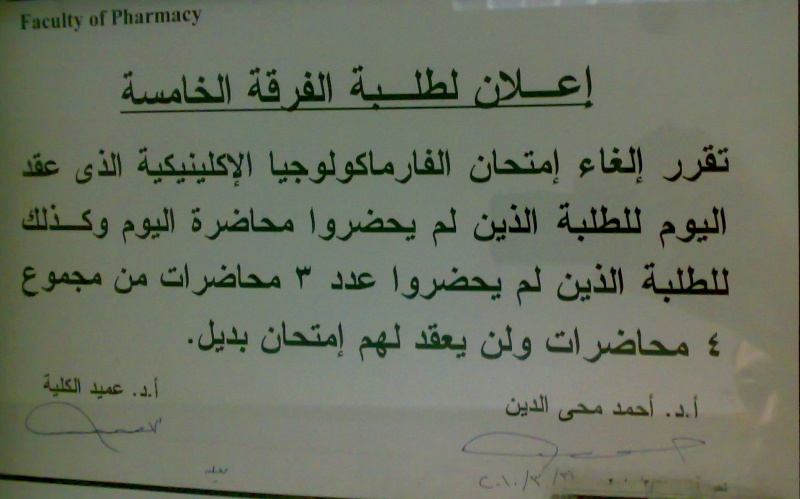 Faculty of Pharmacy
إعـــلان لطلـــبة الفرقة الخامسة
تقرر إلغاء إمتحان الفارماكولوجيا الإكلينيكية الذى عقد
اليوم للطلبة الذين لم يحضروا محاضرة اليوم وكـــذلك
للطلبة الذين لم يحضروا عدد ٣ محاضرات من مجموع
٤ محاضرات ولن يعقد لهم إمتحان بديل.
أ.د. عميد الكلية
أ.د. أحمد محى الدين
٢٠١٠/٣/٣١